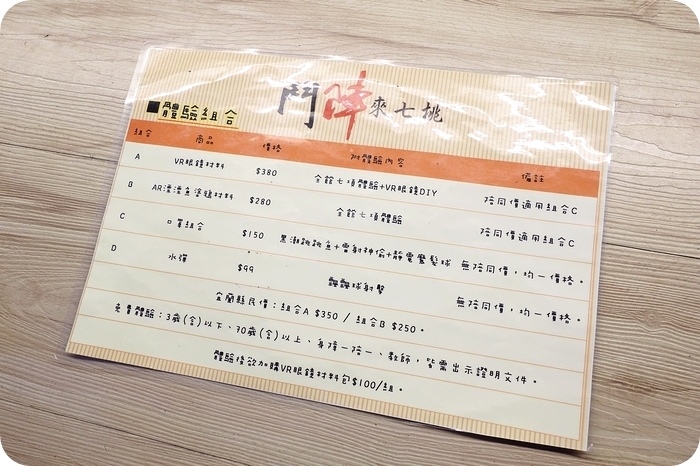 鬥陣來七桃
■體驗組合
組合 商品 價格 附體驗內容 備註
A VR眼鏡材料 $380 全館七項體驗+VR眼鏡DIY 陪同價適用組合C
B AR漾漾魚塗鴉材料 $280 全館七項體驗 陪同價適用組合C
C 口罩組合 $150 黑潮跳跳魚+雷射神偷+靜電驚髮球 無陪同價,均一價格。
D 水彈 $99 飄飄球射擊 無陪同價,均一價格。
宜蘭縣民價:組合A $350 / 組合B $250。
免費體驗:3歲(含)以下、70歲(含)以上、身障一陪一、教師,皆需出示證明文件。
體驗後欲加購VR眼鏡材料包$100/組。